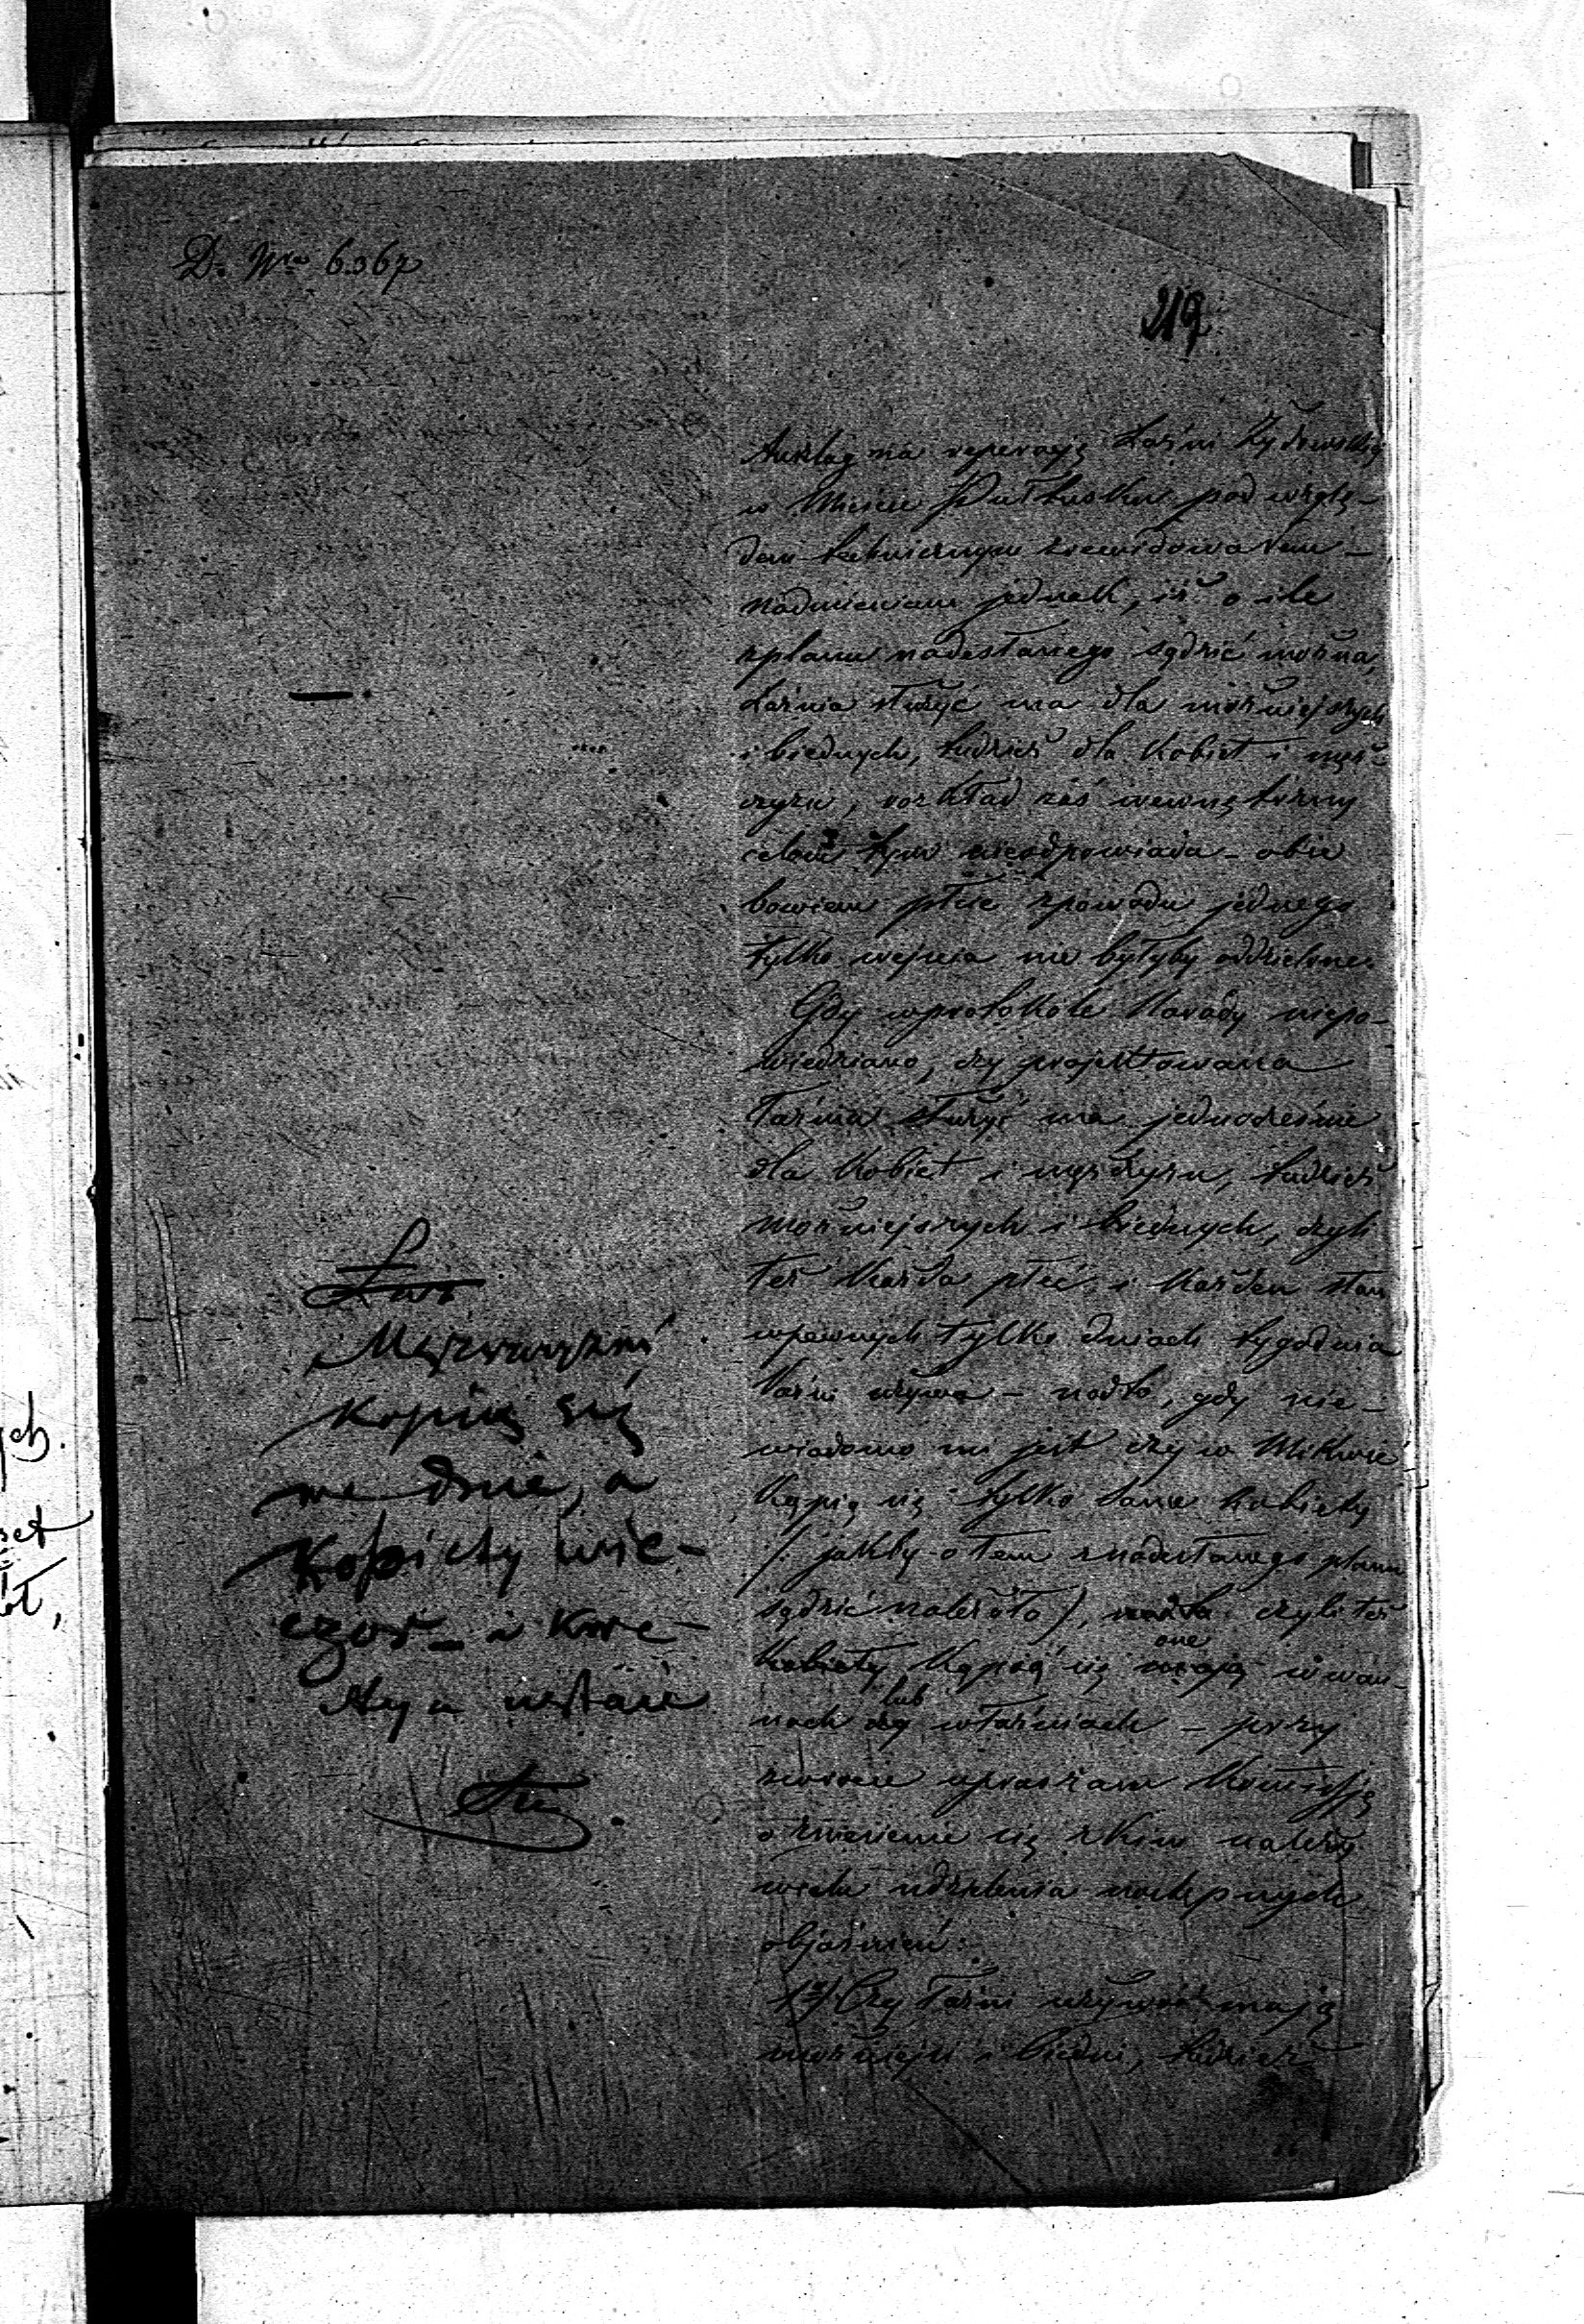 D. Nro 6367
219
Anszlag na reperacyą Łaźni Żydowskiéj
w Mieście Pułtusku pod wzglę-
dem technicznym zrewidowałem –
nadmieniam jednak, iż o ile
zplanu nadesłanego sądzić można,
Łaźnia służyć ma dla możniejszych
i biednych, tudzież dla kobiet i męż-
czyzn, rozkład zaś wewnętrzny
celowi tym nieodpowiada – obie
bowiem płcie zpowodu jednego
tylko wejścia nie byłyby oddzielone.
Gdy wprotokole Narady niepo-
wiedziano, czy projektowana
łaźnia służyć ma jednocześnie
dla kobiet i mężczyzn, tudzież
możniejszych i biednych, czyli
też każda płeć i każden stan
wpewnych tylko dniach tygodnia
łaźni używa – nadto, gdy nie-
wiadomo mi jest czy w Mikwie
kąpią się tylko same kobiety
/: jakby o tem znadesłanego planu
sądzić należało /, czyli też
kąpią się one w wan-
nach lub właźniach – przy
zwrocie upraszam Kommissją
o zniesienie się zkim należy
wcelu udzielenia następnych
objaśnień:
1o/ Czy łaźni używać mają
możniejsi i biedni, tudzież
Mężczyzni
kąpią się
we dnie, a
Kobiety wie-
czor – a kwe-
stya ustaie